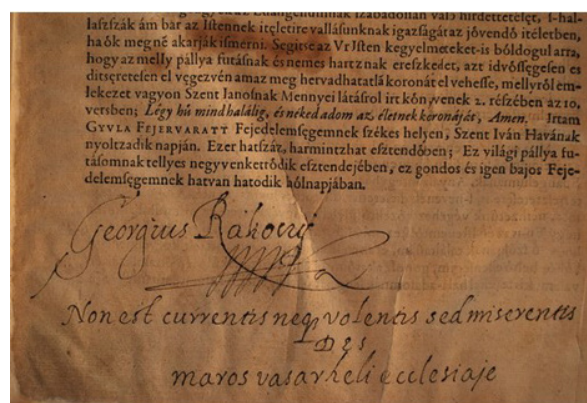 laszszák ám bár az Istennek itęletire vallásunknak igazságát az jövendő itéletben,
ha ők meg né akarják ismérni. Segitse az Vr Isten kegyelmeteket-is bóldogul arra,
hogy az melly pállya futásnak és nemes hartznak ereszkedet, azt idvösségesen es
ditsęretesen el vęgezvén amaz meg hervadhatatlā koronát el vehesse, mellyről em-
lekezet vagyon Szent Janosnak Mennyei látásrol irt könyvenek 2. részében az 10.
versben; Légy hű mind halálig, és néked adom az életnek koronáját, Amen. Irtam
GYVLA FEJERVARATT Fejedelemsęgemnek székes helyen, Szent Iván Havának
nyoltzadik napján. Ezer hatszáz, harmintzhat esztendőben; Ez világi pállya fu-
tásomnak tellyes negyvenkettődik esztendejében, ez gondos és igen bajos Feje-
delemsęgemnek hatvan hatodik hólnapjában.
Georgius Rákoczy
Non est currentis neq volentis sed miserentis
Dei
maros vasarheli ecclesiaje